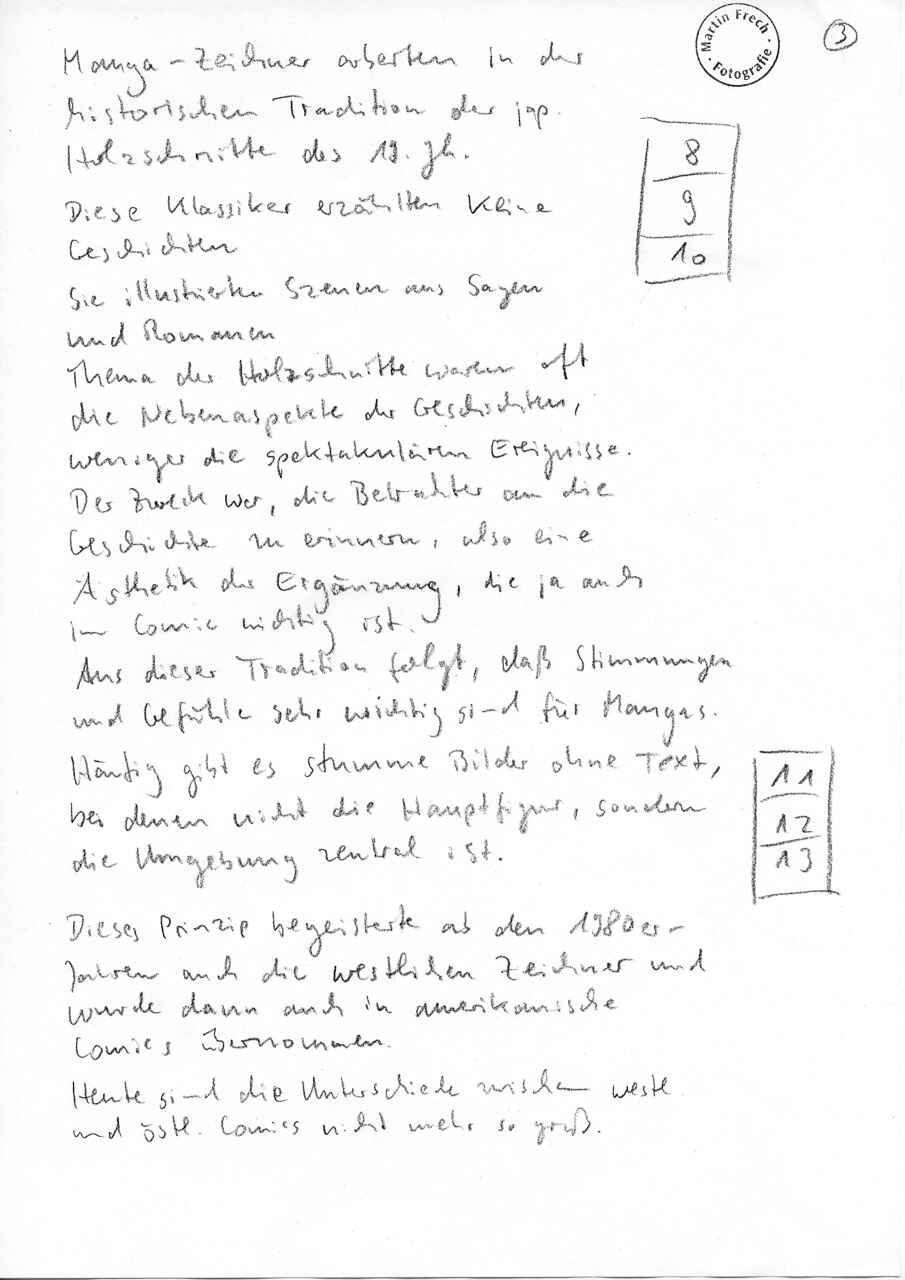 Martin Frech · Fotografie ·
3
Manga-Zeichner arbeiten in der
historischen Tradition der jap.
Holzschnitte des 19. Jh.
8
9
10
Diese Klassiker erzählten keine
Geschichten
Sie illustrierten Szenen aus Sagen
und Romanen
Thema der Holzschnitte waren oft
die Nebenaspekte der Geschichten,
weniger die spektakulären Ereignisse.
Der Zweck war, die Betrachter an die
Geschichte zu erinnern, also eine
Ästhetik der Ergänzung, die ja auch
im Comic wichtig ist.
Aus dieser Tradition folgt, daß Stimmungen
und Gefühle sehr wichtig sind für Mangas.
Häufig gibt es stumme Bilder ohne Text,
bei denen nicht die Hauptfigur, sondern
die Umgebung zentral ist.
11
12
13
Dieses Prinzip begeisterte ab den 1980er-
Jahren auch die westlichen Zeichner und
wurde dann auch in amerikanische
Comics übernommen.
Heute sind die Unterschiede zwischen westl.
und östl. Comics nicht mehr so groß.